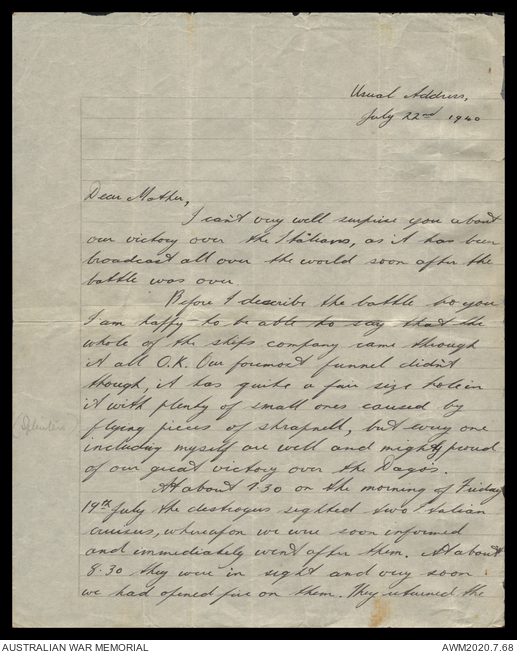 Usual Address,
July 22nd 1940
Dear Mother,
I can't very well surprise you about
our victory over the Italians, as it has been
broadcast all over the world soon after the
battle was over.
Before I describe the battle to you
I am happy to be able to say that the
whole of the ships company came through
it all O.K. Our foremost funnel didn't
though, it has quite a fair size hole in
it with plenty of small ones caused by
(Splinters)
flying pieces of shrapnell, but every one
including myself are well and mighty proud
of our great victory over the Dagos.
At about 7.30 on the morning of Friday
19th July the destroyers sighted two Italian
cruisers, whereupon we were soon informed
and immediately went after them. At about
8.30 they were in sight and very soon
we had opened fire on them. They returned the
AUSTRALIAN WAR MEMORIAL
AWM2020.7.68